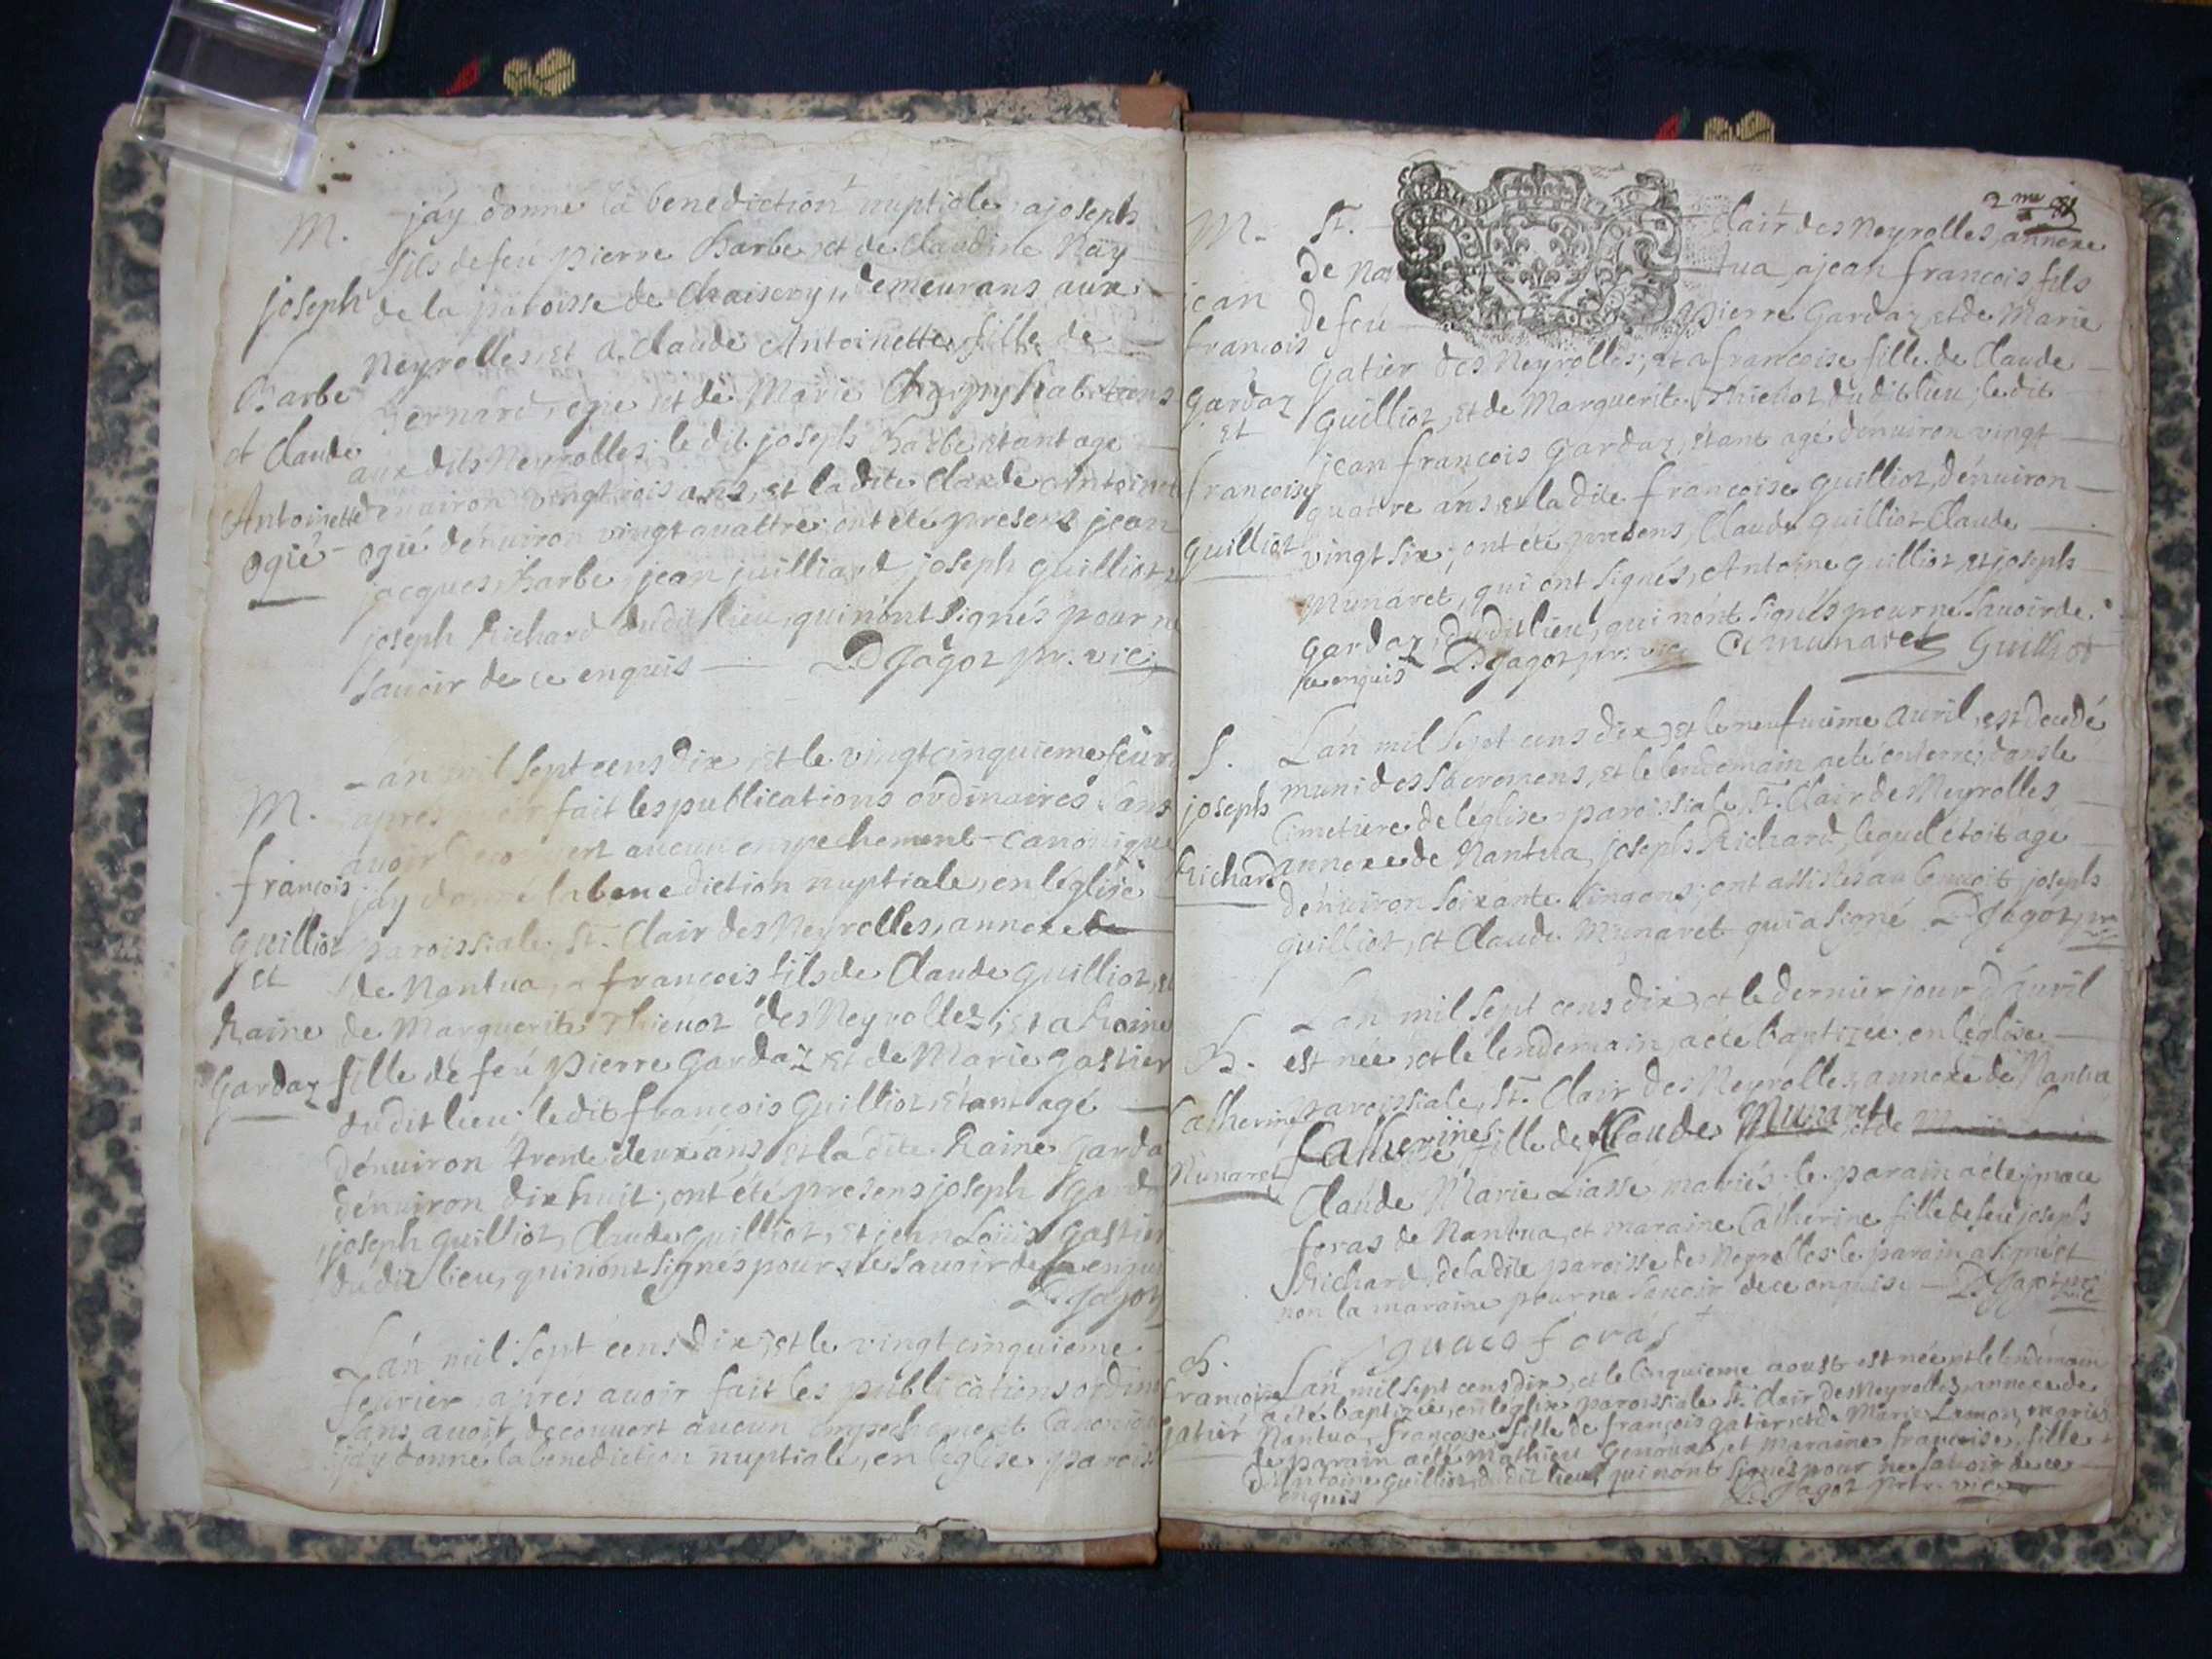 M.
joseph
Barbe
et Claude
Antoinette
ogié
jáy donné la benediction nuptiale, a joseph
fils de feu pierre Barbe et de Claudine Nay
de la paroisse de Chaisery, demeurans aux
Neyrolles, et a Claude Antoinette fille de
Bernard, ogie et de Marie habitans
aux dits Neyrolles; le dit joseph Barbe étant agé
dénuiron vingt trois ans, et la dite Claude Antoinet
ogié dénuiron vingt quattre; ont été presens jean
jacques Barbe, jean juilliard joseph guilliot,
joseph Richard dudit lieu, qui nónt signés pour ne
sauoir de ce enquis — D Jagot pr. vic.
M.
françois
guilliot
et
Raine
Gardaz
Lán mil sept cens dix, et le vingt cinquieme feur
apres auoir fait les publications ordinaires sans
auoir decouvert aucun empechement canonique
jáy donné la benediction nuptiale, en léglise
paroissiale, St. Clair des Neyrolles, annexe de
de Nantua, a françois fils de Claude guilliot, et
de Marguerite Thieuot des Neyrolles; et a Raine
fille de feu Pierre Gardaz et de Marie gastier
dudit lieu; le dit françois Guilliot, étant agé
dénuiron trente deux ans, et la dite Raine Garda
dénuiron dix huit; ont été presens joseph Gard
joseph guilliot, Claude guilliot, et jean Loüis gastier
du dit lieu, qui nónt signés pour ne sauoir de ce enqui
D. Jagot
Lán mil sept cens dix, et le vingt cinquieme
feurier apres auoir fait les publications ordin
sans auoir decouvert aucun empechement Canoniqu
jáy donné la benediction nuptiale, en léglise parois
2me
M.
jean
francois
Gardaz
et
françoise
guilliot
St. Clair des Neyrolles, annexe
de Nantua, a jean francois, fils
de feu Pierre Gardaz, et de Marie
Gatier des Neyrolles; et a francoise fille de Claude
Guilliot, et de Marguerite Thieuot, du dit lieu; le dit
jean françois Gardaz, étant agé dénuiron vingt
quatre áns, et la dite francoise guilliot, dénuiron
vingt six; ont été presens, Claude guilliot Claude
Munaret, qui ont signés, Antoine guilliot, et joseph
Gardaz, dudit lieu, qui nónt signés pour ne sauoir de
ce enquis D. Jagot pr. vic. C munaret Guilliot
S.
joseph
Richard
Lán mil sept cens dix, et le neufuieme auril, est decedé
muni des sacremens, et le lendemain, a eté enterré, dans le
Cimetiere de léglise paroissiale, St. Clair de Neyrolles
annexe de Nantua, joseph Richard, lequel étoit agé
dénuiron soixante cinq ans; ont assistés au benoit joseph
guilliot, et Claude Munaret qui a signé D. Jagot, pr
vic
B.
Catherine
Munaret
Lán mil sept cens dix, et le dernier jour dáuril
est née, et le lendemain, a eté baptizée, en léglise
paroissiale, St. Clair des Neyrolles, annexe de Nantua
Catherine fille de Claude Munaret et de
Claude Marie Liasse mariés; le parain a été jgnace
foras de Nantua, et maraine Catherine fille de feu joseph
Richard, de la dite paroisse des Neyrolles; le parain a signé et
non la maraine pour ne sauoir de ce enquise — D. Jagot pr
vic
jgnace foras
B.
francoise
Gatier
Lán mil sept cens dix, et le Cinquieme aoust est née, et le lendemain
a eté baptizée, en léglise paroissiale St. Clair des Neyrolles, annexe de
Nantua, françoise fille de françois gatier, et de Marie Lemon, mariés
le parain a eté Mathieu Genouat, et maraine françoise, fille
Dántoine guilliot, du dit lieu, qui nónt signés pour ne sauoir de ce
enquis D. Jagot pretr. vic